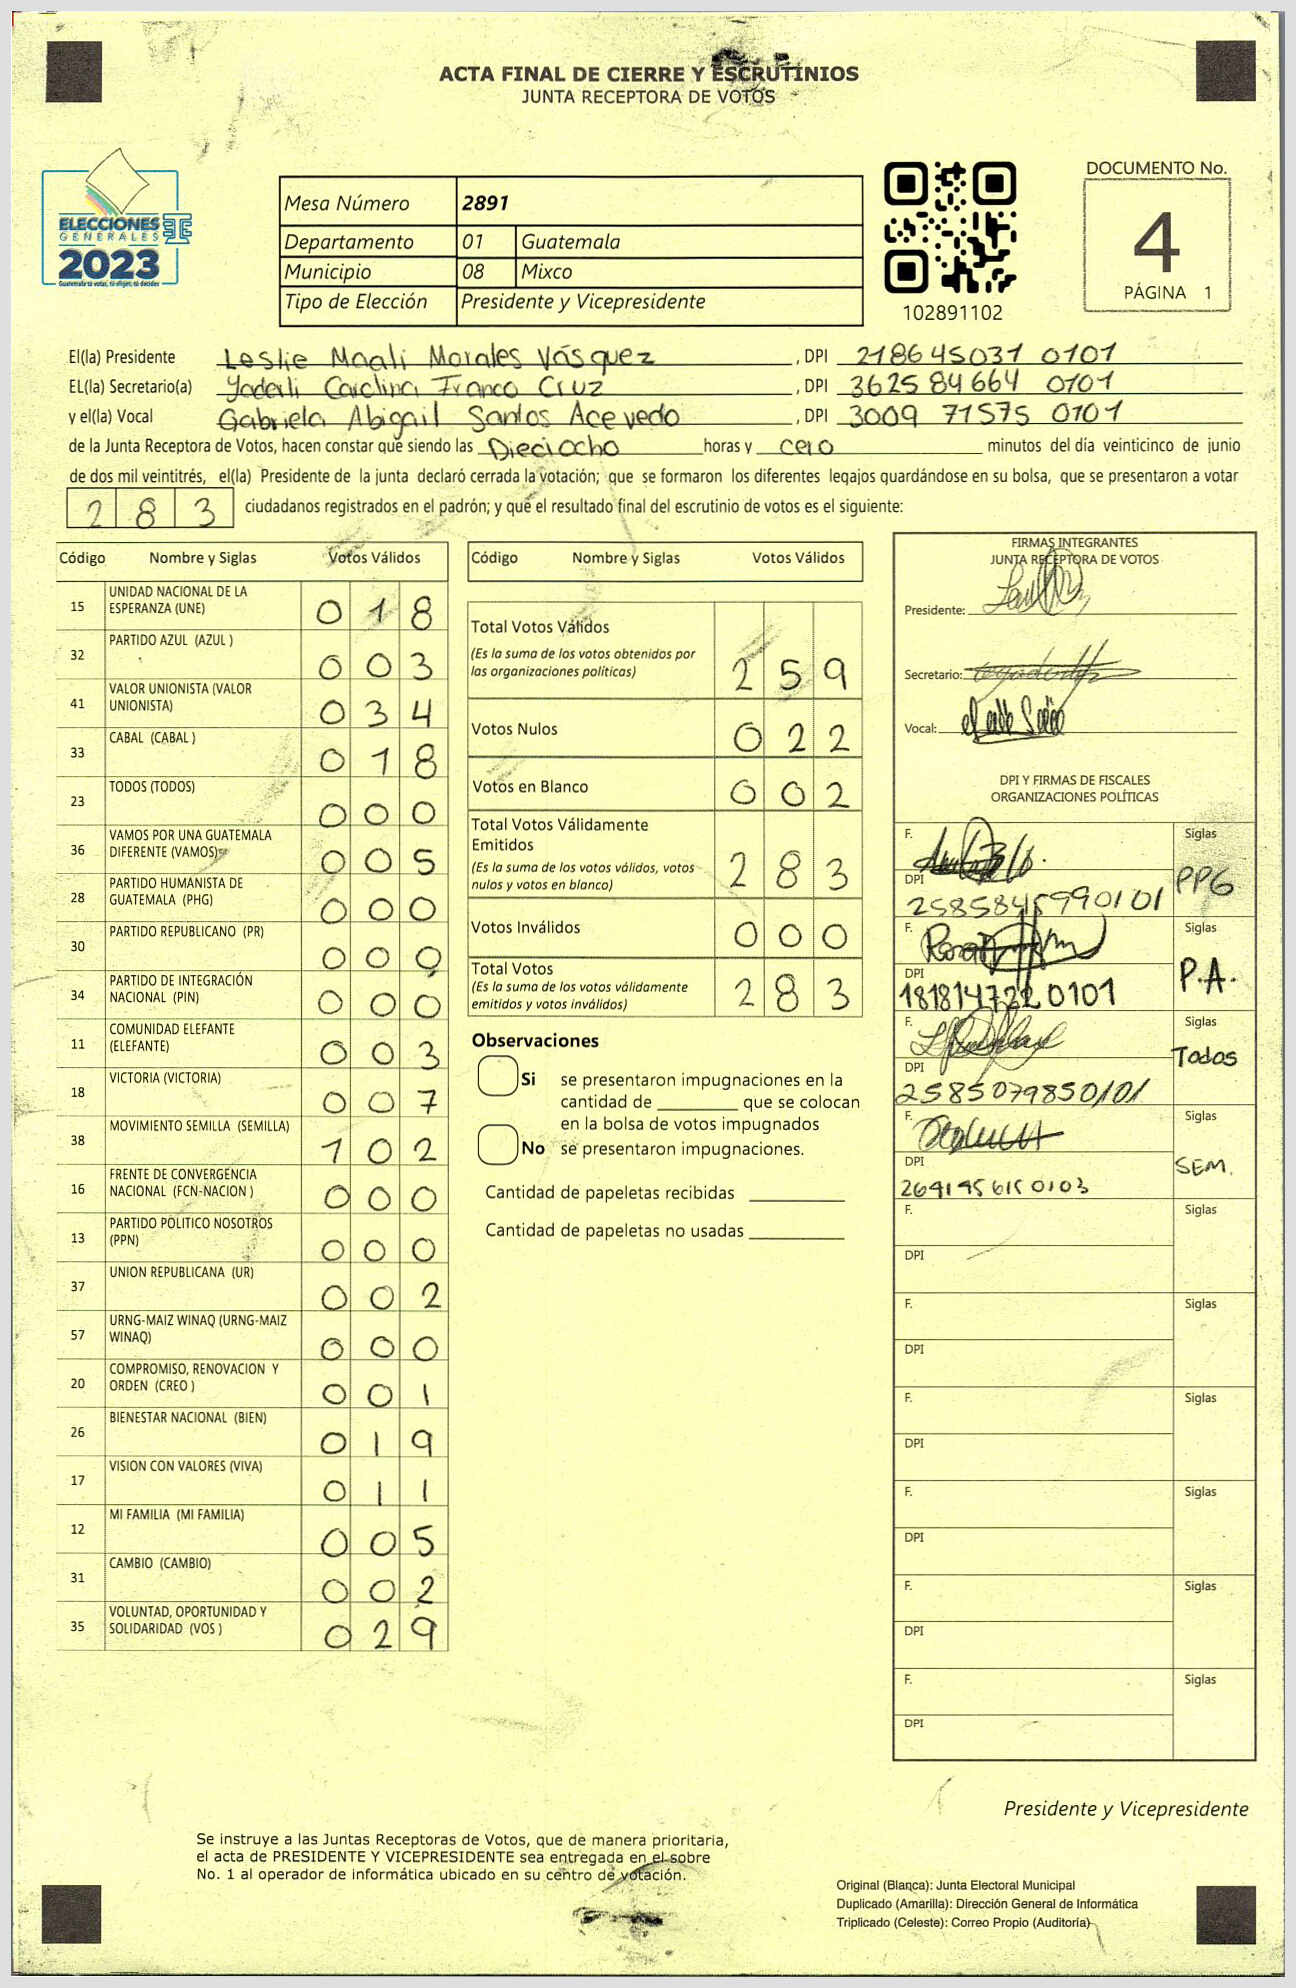 ACTA FINAL DE CIERRE Y ESCRUTINIOS
JUNTA RECEPTORA DE VOTOS
ELECCIONES
GENERALES
2023
Guatemala tú votas, tú eliges, tú decides
Mesa Número 2891
Departamento 01 Guatemala
Municipio 08 Mixco
Tipo de Elección Presidente y Vicepresidente
102891102
DOCUMENTO No.
4
PÁGINA 1
El(la) Presidente Leslie Magli Morales Vásquez , DPI 218645031 0101
EL(la) Secretario(a) Yaderli Carolina Franco Cruz , DPI 362584664 0101
y el(la) Vocal Gabriela Abigail Santos Acevedo , DPI 3009 71575 0101
de la Junta Receptora de Votos, hacen constar que siendo las Dieciocho horas y cero minutos del día veinticinco de junio
de dos mil veintitrés, el(la) Presidente de la junta declaró cerrada la votación; que se formaron los diferentes legajos quardándose en su bolsa, que se presentaron a votar
283 ciudadanos registrados en el padrón; y que el resultado final del escrutinio de votos es el siguiente:
Código Nombre y Siglas Votos Válidos
15 UNIDAD NACIONAL DE LA ESPERANZA (UNE) 018
32 PARTIDO AZUL (AZUL ) 003
41 VALOR UNIONISTA (VALOR UNIONISTA) 034
33 CABAL (CABAL ) 018
23 TODOS (TODOS) 000
36 VAMOS POR UNA GUATEMALA DIFERENTE (VAMOS) 005
28 PARTIDO HUMANISTA DE GUATEMALA (PHG) 000
30 PARTIDO REPUBLICANO (PR) 000
34 PARTIDO DE INTEGRACIÓN NACIONAL (PIN) 000
11 COMUNIDAD ELEFANTE (ELEFANTE) 003
18 VICTORIA (VICTORIA) 007
38 MOVIMIENTO SEMILLA (SEMILLA) 102
16 FRENTE DE CONVERGENCIA NACIONAL (FCN-NACION ) 000
13 PARTIDO POLITICO NOSOTROS (PPN) 000
37 UNION REPUBLICANA (UR) 002
57 URNG-MAIZ WINAQ (URNG-MAIZ WINAQ) 000
20 COMPROMISO, RENOVACION Y ORDEN (CREO ) 001
26 BIENESTAR NACIONAL (BIEN) 019
17 VISION CON VALORES (VIVA) 011
12 MI FAMILIA (MI FAMILIA) 005
31 CAMBIO (CAMBIO) 002
35 VOLUNTAD, OPORTUNIDAD Y SOLIDARIDAD (VOS ) 029
Código Nombre y Siglas Votos Válidos
Total Votos Válidos
(Es la suma de los votos obtenidos por
las organizaciones políticas) 259
Votos Nulos 022
Votos en Blanco 002
Total Votos Válidamente
Emitidos
(Es la suma de los votos válidos, votos
nulos y votos en blanco) 283
Votos Inválidos 000
Total Votos
(Es la suma de los votos válidamente
emitidos y votos inválidos) 283
Observaciones
Si se presentaron impugnaciones en la
cantidad de ________ que se colocan
en la bolsa de votos impugnados
No se presentaron impugnaciones.
Cantidad de papeletas recibidas
Cantidad de papeletas no usadas
FIRMAS INTEGRANTES
JUNTA RECEPTORA DE VOTOS
Presidente:
Secretario:
Vocal:
DPI Y FIRMAS DE FISCALES
ORGANIZACIONES POLÍTICAS
F. Siglas PPG
DPI 2585845990101
F. Siglas P.A.
DPI 1818147220101
F. Siglas Todos
DPI 2585079850101
F. Siglas SEM.
DPI 2641956150103
F. Siglas
DPI
F. Siglas
DPI
F. Siglas
DPI
F. Siglas
DPI
F. Siglas
DPI
F. Siglas
DPI
Presidente y Vicepresidente
Se instruye a las Juntas Receptoras de Votos, que de manera prioritaria,
el acta de PRESIDENTE Y VICEPRESIDENTE sea entregada en el sobre
No. 1 al operador de informática ubicado en su centro de votación.
Original (Blanca): Junta Electoral Municipal
Duplicado (Amarilla): Dirección General de Informática
Triplicado (Celeste): Correo Propio (Auditoría)